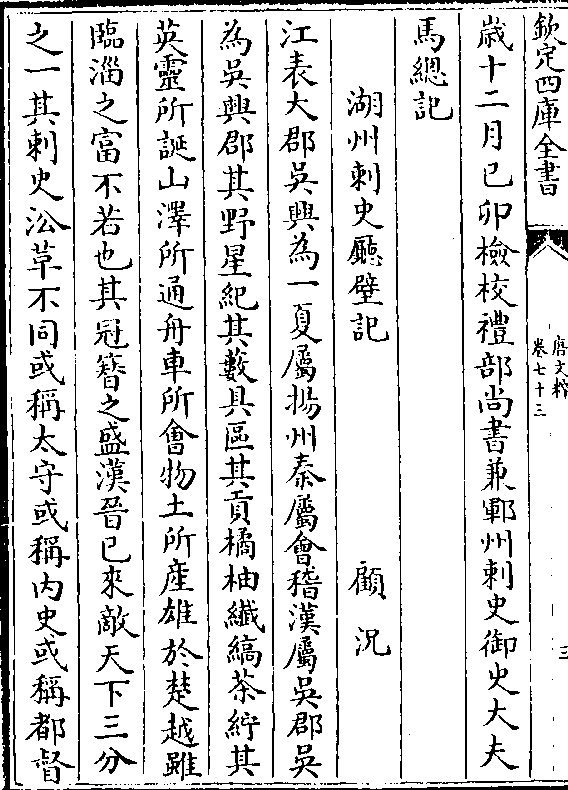 欽定四庫全書
唐文粹
卷七十三
三
歲十二月己卯檢校禮部尚書兼鄆州刺史御史大夫
馬總記
湖州刺史廳壁記 顧況
江表大郡吳興為一夏屬揚州秦屬會稽漢屬吳郡吳
為吳興郡其野星紀其藪具區其貢橘柚纎縞茶紵其
英靈所誕山澤所通舟車所會物土所產雄於楚越雖
臨淄之富不若也其冠簪之盛漢晉已來敵天下三分
之一其刺史沿革不同或稱太守或稱内史或稱都督